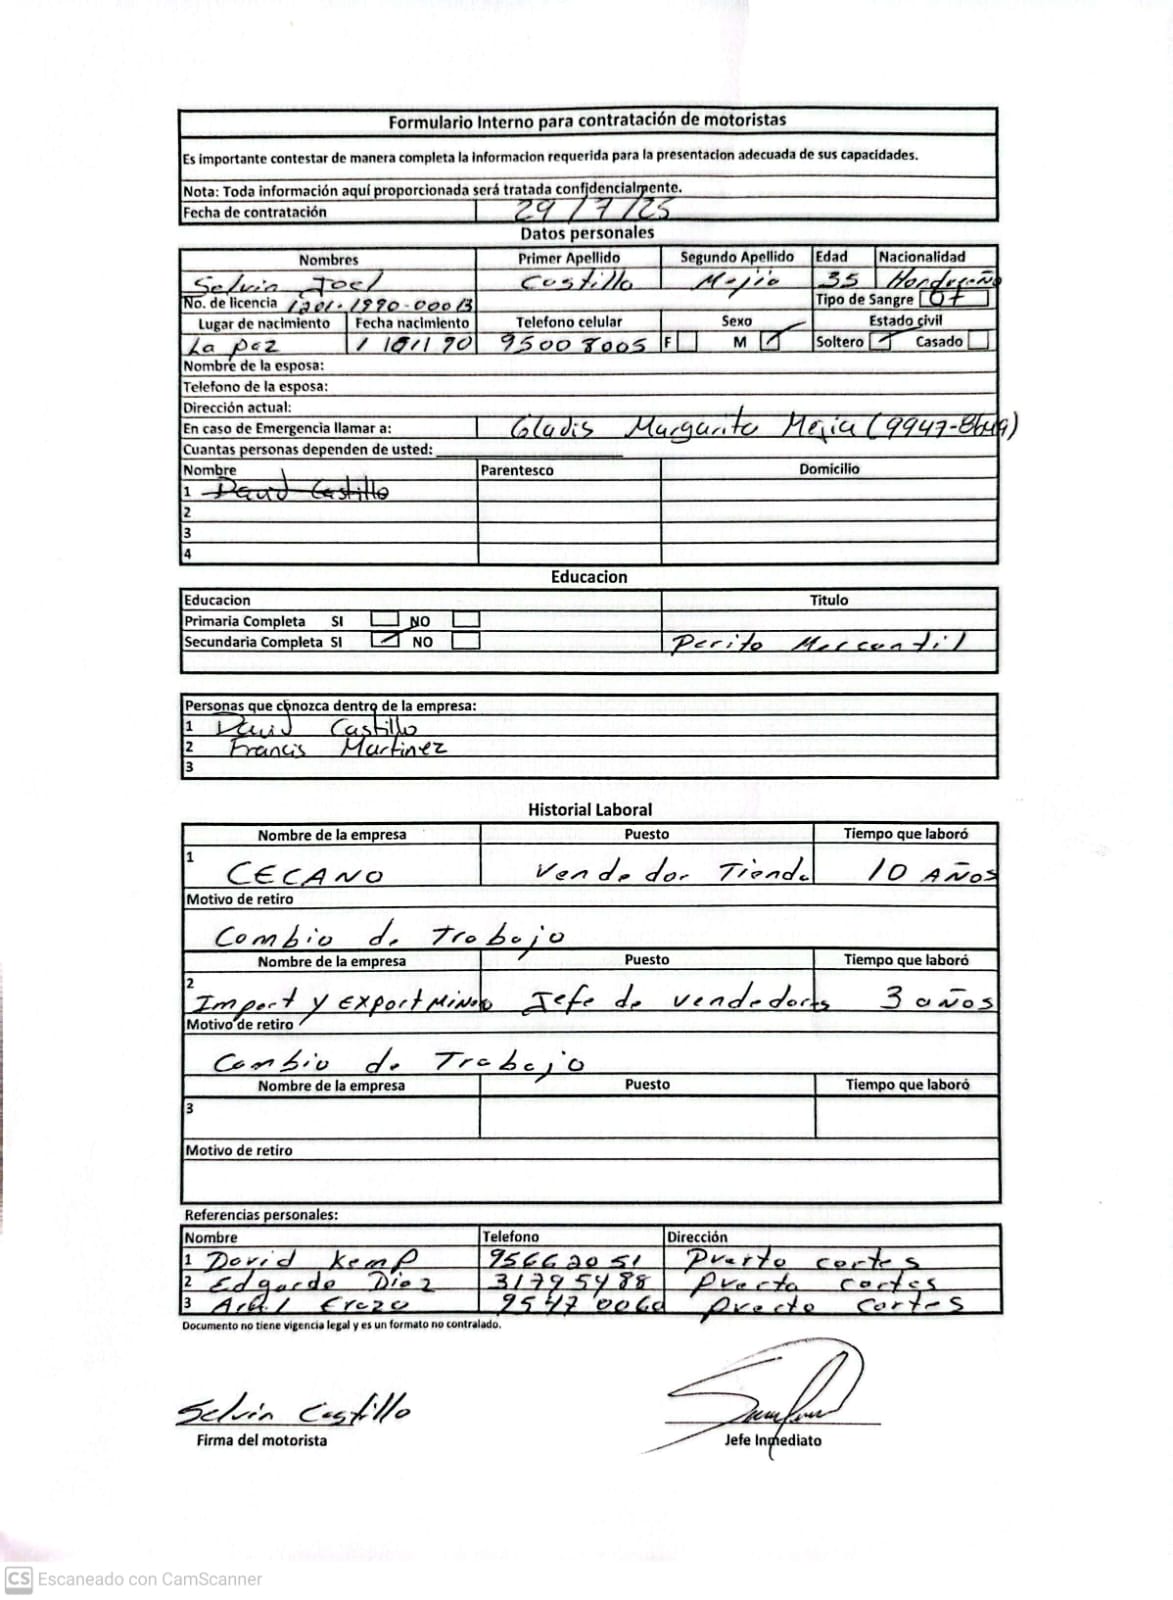 Formulario Interno para contratación de motoristas
Es importante contestar de manera completa la informacion requerida para la presentacion adecuada de sus capacidades.
Nota: Toda información aquí proporcionada será tratada confidencialmente.
Fecha de contratación 29/7/25
Datos personales
Nombres Primer Apellido Segundo Apellido Edad Nacionalidad
Selvin Joel Castillo Mejia 35 Hondureño
No. de licencia 1201-1990-00013 Tipo de Sangre O+
Lugar de nacimiento Fecha nacimiento Telefono celular Sexo Estado civil
La paz 95008005 F M Soltero Casado
Nombre de la esposa:
Telefono de la esposa:
Dirección actual:
En caso de Emergencia llamar a: Gladis Margarita Mejia (9947-8649)
Cuantas personas dependen de usted:
Nombre Parentesco Domicilio
1 David Castillo
2
3
4
Educacion
Educacion Titulo
Primaria Completa SI NO
Secundaria Completa SI NO Perito Mercantil
Personas que conozca dentro de la empresa:
1 David Castillo
2 Francis Martinez
3
Historial Laboral
Nombre de la empresa Puesto Tiempo que laboró
1 CECANO Vendedor Tienda 10 AÑOS
Motivo de retiro
Cambio de Trabajo
Nombre de la empresa Puesto Tiempo que laboró
2 Import y Export Jefe de vendedores 3 años
Motivo de retiro
Cambio de Trabajo
Nombre de la empresa Puesto Tiempo que laboró
3
Motivo de retiro
Referencias personales:
Nombre Telefono Dirección
1 David Kemp 95662051 Puerto cortes
2 Edgardo Diaz 31795488 Puerto cortes
3 Erazo Puerto cortes
Documento no tiene vigencia legal y es un formato no contralado.
Selvin Castillo
Firma del motorista Jefe Inmediato
CS Escaneado con CamScanner